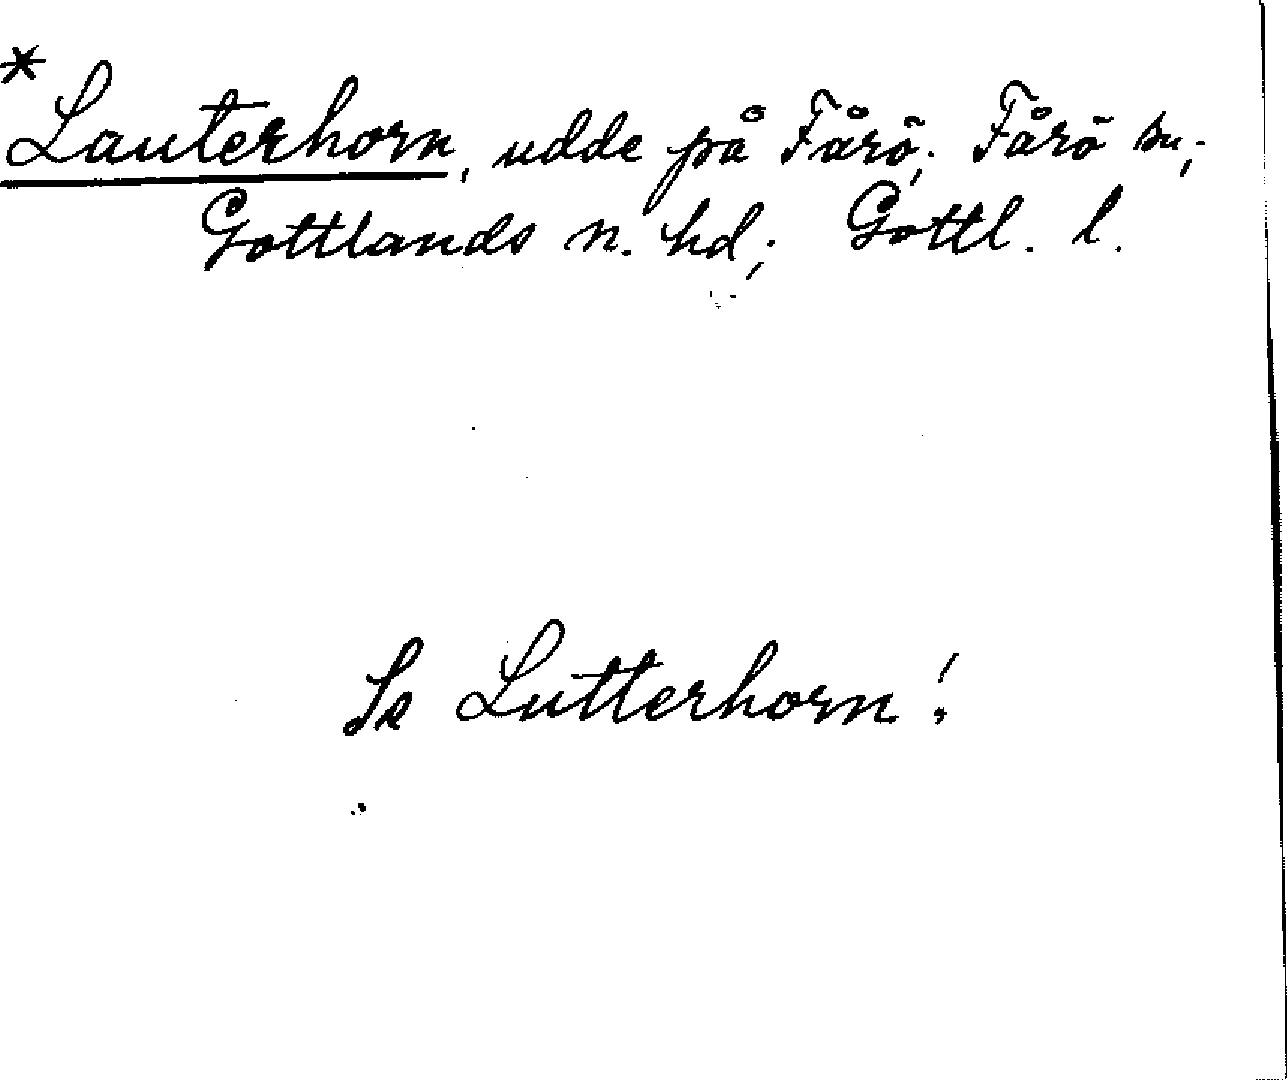 *Lauterhorn, udde på Fårö; Fårö sn;
Gottlands n. hd; Gottl. l.
Se Lutterhorn!